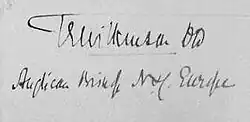 T E Wilkinson DD
Anglican Bishop N & C. Europe